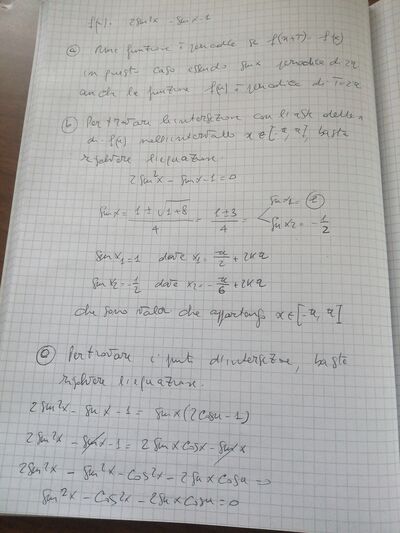 f(x): 2sin²x - sinx - 1
(a) Una funzione è periodica se f(x+T) = f(x)
in questo caso essendo sinx periodica di 2π
anche la funzione f(x) è periodica di T=2π
(b) Per trovare le intersezioni con l'asse delle x
di f(x) nell'intervallo x∈[-π, π], basta
risolvere l'equazione:
2sin²x - sinx - 1 = 0
sinx = (1 ± √(1+8))/4 = (1±3)/4 sinx1 = 1 sinx2 = -1/2
sinx1 = 1 dove x1 = π/2 + 2Kπ
sinx2 = -1/2 dove x2 = -π/6 + 2Kπ
che sono valori che appartengo x∈[-π, π]
(c) Per trovare i punti d'intersezione, basta
risolvere l'equazione.
2sin²x - sinx - 1 = sinx(2cosx - 1)
2sin²x - sinx - 1 = 2sinxcosx - sinx
2sin²x - sin²x - cos²x - 2sinxcosx = 0
sin²x - cos²x - 2sinxcosx = 0